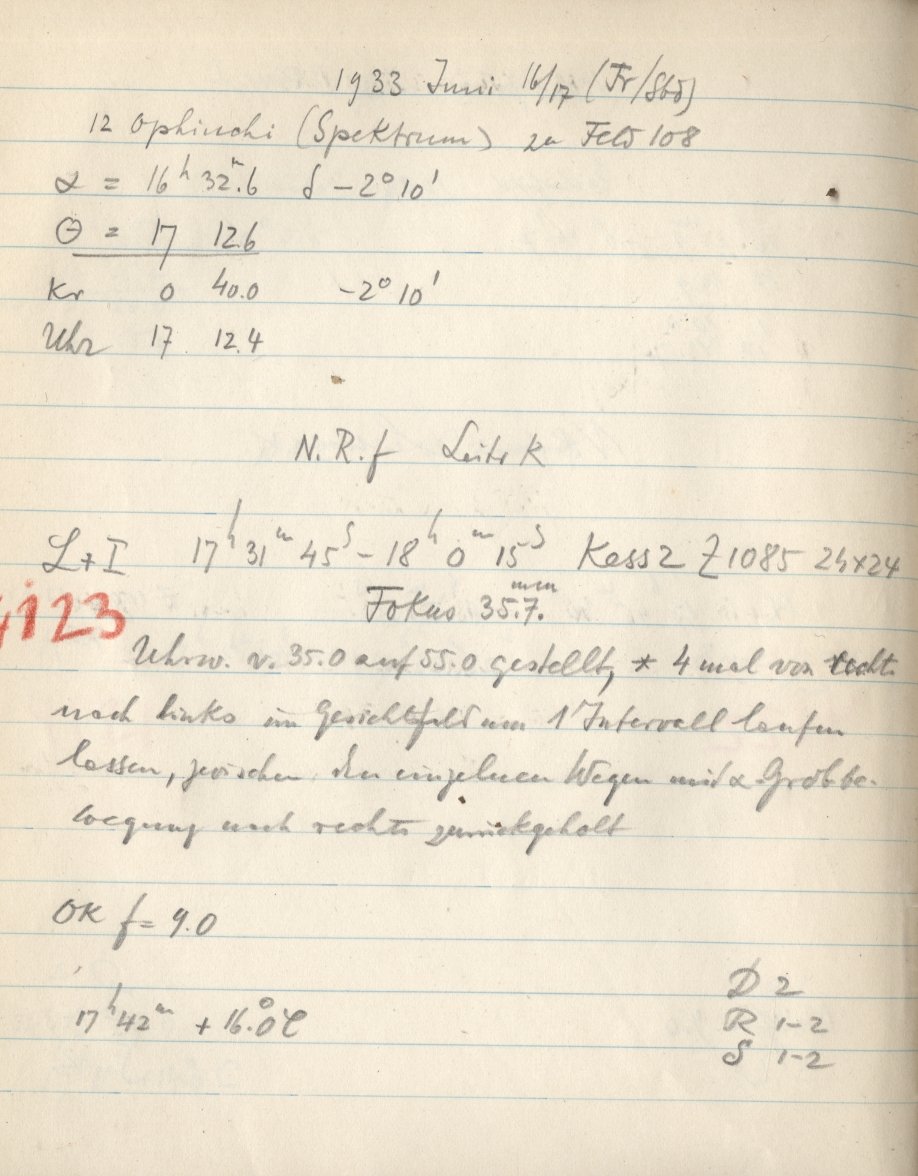 1933 Juni 16/17 (Fr/Sbd)
12 Ophiuchi (Spektrum) zu Feld 108
α = 16ʰ 32ᵐ.6 δ −2° 10'
Θ = 17 12.6
Kr 0 40.0 −2° 10'
Uhr 17 12.4
N.R.f Leitr K
L+I 17ʰ 31ᵐ 45ˢ – 18ʰ 0ᵐ 15ˢ Kass 2 Z 1085 24×24
Fokus 35.7.ᵐᵐ
4123
Uhrw. v. 35.0 auf 55.0 gestellt, * 4 mal von rechts
nach links im Gesichtsfeld um 1 Intervall laufen
lassen, zwischen den einzelnen Wegen mit α-Grobbe-
wegung nach rechts zurückgeholt
OK f = 9.0
17ʰ 42ᵐ +16.°0 C
D 2
R 1-2
S 1-2